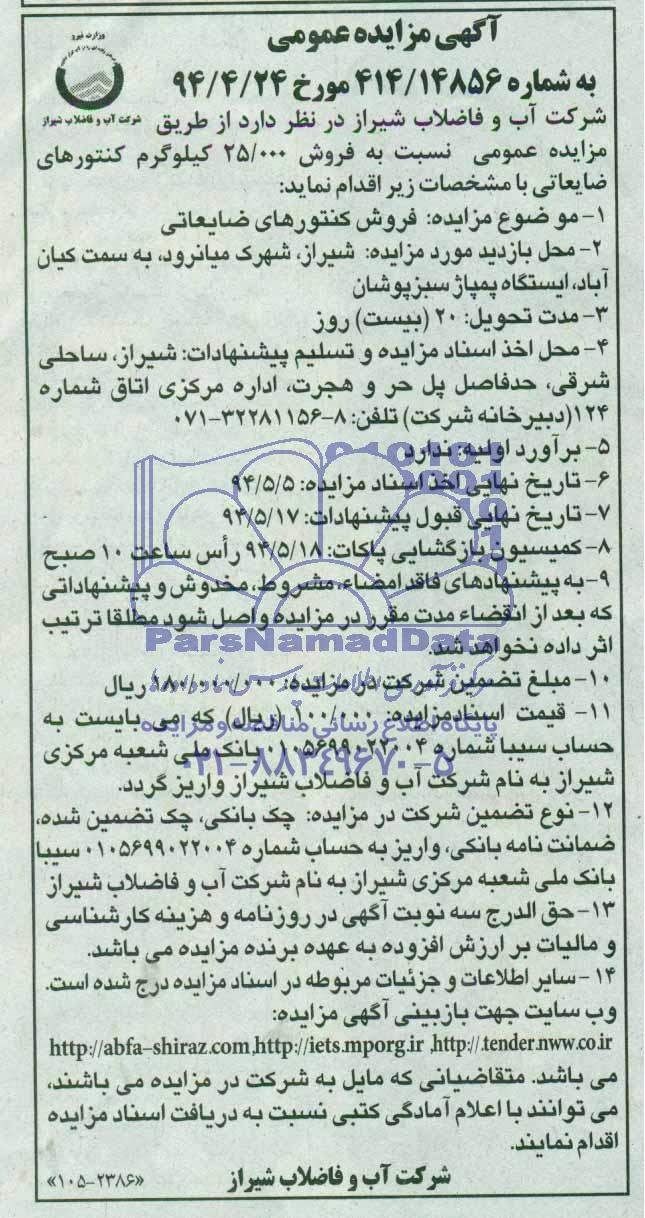 آگهی مزایده عمومی
وزارت نیرو
به شماره ۴۱۴/۱۴۸۵۶ مورخ ۹۴/۴/۲۴
شرکت آب و فاضلاب شیراز
شرکت آب و فاضلاب شیراز در نظر دارد از طریق
مزایده عمومی نسبت به فروش ۲۵/۰۰۰ کیلوگرم کنتورهای
ضایعاتی با مشخصات زیر اقدام نماید:
۱- مو ضوع مزایده: فروش کنتورهای ضایعاتی
۲- محل بازدید مورد مزایده: شیراز، شهرک میانرود، به سمت کیان
آباد، ایستگاه پمپاژ سبزپوشان
۳- مدت تحویل: ۲۰ (بیست) روز
۴- محل اخذ اسناد مزایده و تسلیم پیشنهادات: شیراز، ساحلی
شرقی، حدفاصل پل حر و هجرت، اداره مرکزی اتاق شماره
۱۲۴(دبیرخانه شرکت) تلفن: ۸-۳۲۲۸۱۱۵۶-۰۷۱
۵- برآورد اولیه: ندارد
۶- تاریخ نهایی اخذ اسناد مزایده: ۹۴/۵/۵
۷- تاریخ نهایی قبول پیشنهادات: ۹۴/۵/۱۷
۸- کمیسیون بازگشایی پاکات: ۹۴/۵/۱۸ رأس ساعت ۱۰ صبح
۹- به پیشنهادهای فاقد امضاء، مشروط، مخدوش و پیشنهاداتی
که بعد از انقضاء مدت مقرر در مزایده واصل شود مطلقا ترتیب
ParsNamadData
اثر داده نخواهد شد.
۱۰- مبلغ تضمین شرکت در مزایده: ۱۸۰/۰۰۰/۰۰۰ ریال
۱۱- قیمت اسنادمزایده: ۱۰۰/۰۰۰ (ریال) که می بایست به
پایگاه اطلاع رسانی مناقصه و مزایده
حساب سیبا شماره ۰۱۰۵۶۹۹۰۲۲۰۰۴ بانک ملی شعبه مرکزی
۰۲۱-۸۸۳۴۹۶۷۰-۵
شیراز به نام شرکت آب و فاضلاب شیراز واریز گردد.
۱۲- نوع تضمین شرکت در مزایده: چک بانکی، چک تضمین شده،
ضمانت نامه بانکی، واریز به حساب شماره ۰۱۰۵۶۹۹۰۲۲۰۰۴ سیبا
بانک ملی شعبه مرکزی شیراز به نام شرکت آب و فاضلاب شیراز
۱۳- حق الدرج سه نوبت آگهی در روزنامه و هزینه کارشناسی
و مالیات بر ارزش افزوده به عهده برنده مزایده می باشد.
۱۴- سایر اطلاعات و جزئیات مربوطه در اسناد مزایده درج شده است.
وب سایت جهت بازبینی آگهی مزایده:
http://abfa-shiraz.com,http://iets.mporg.ir ,http://.tender.nww.co.ir
می باشد. متقاضیانی که مایل به شرکت در مزایده می باشند،
می توانند با اعلام آمادگی کتبی نسبت به دریافت اسناد مزایده
اقدام نمایند.
شرکت آب و فاضلاب شیراز
«۱۰۵-۲۳۸۶»